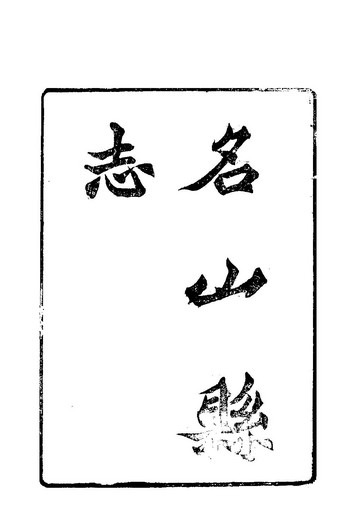 名山縣
志